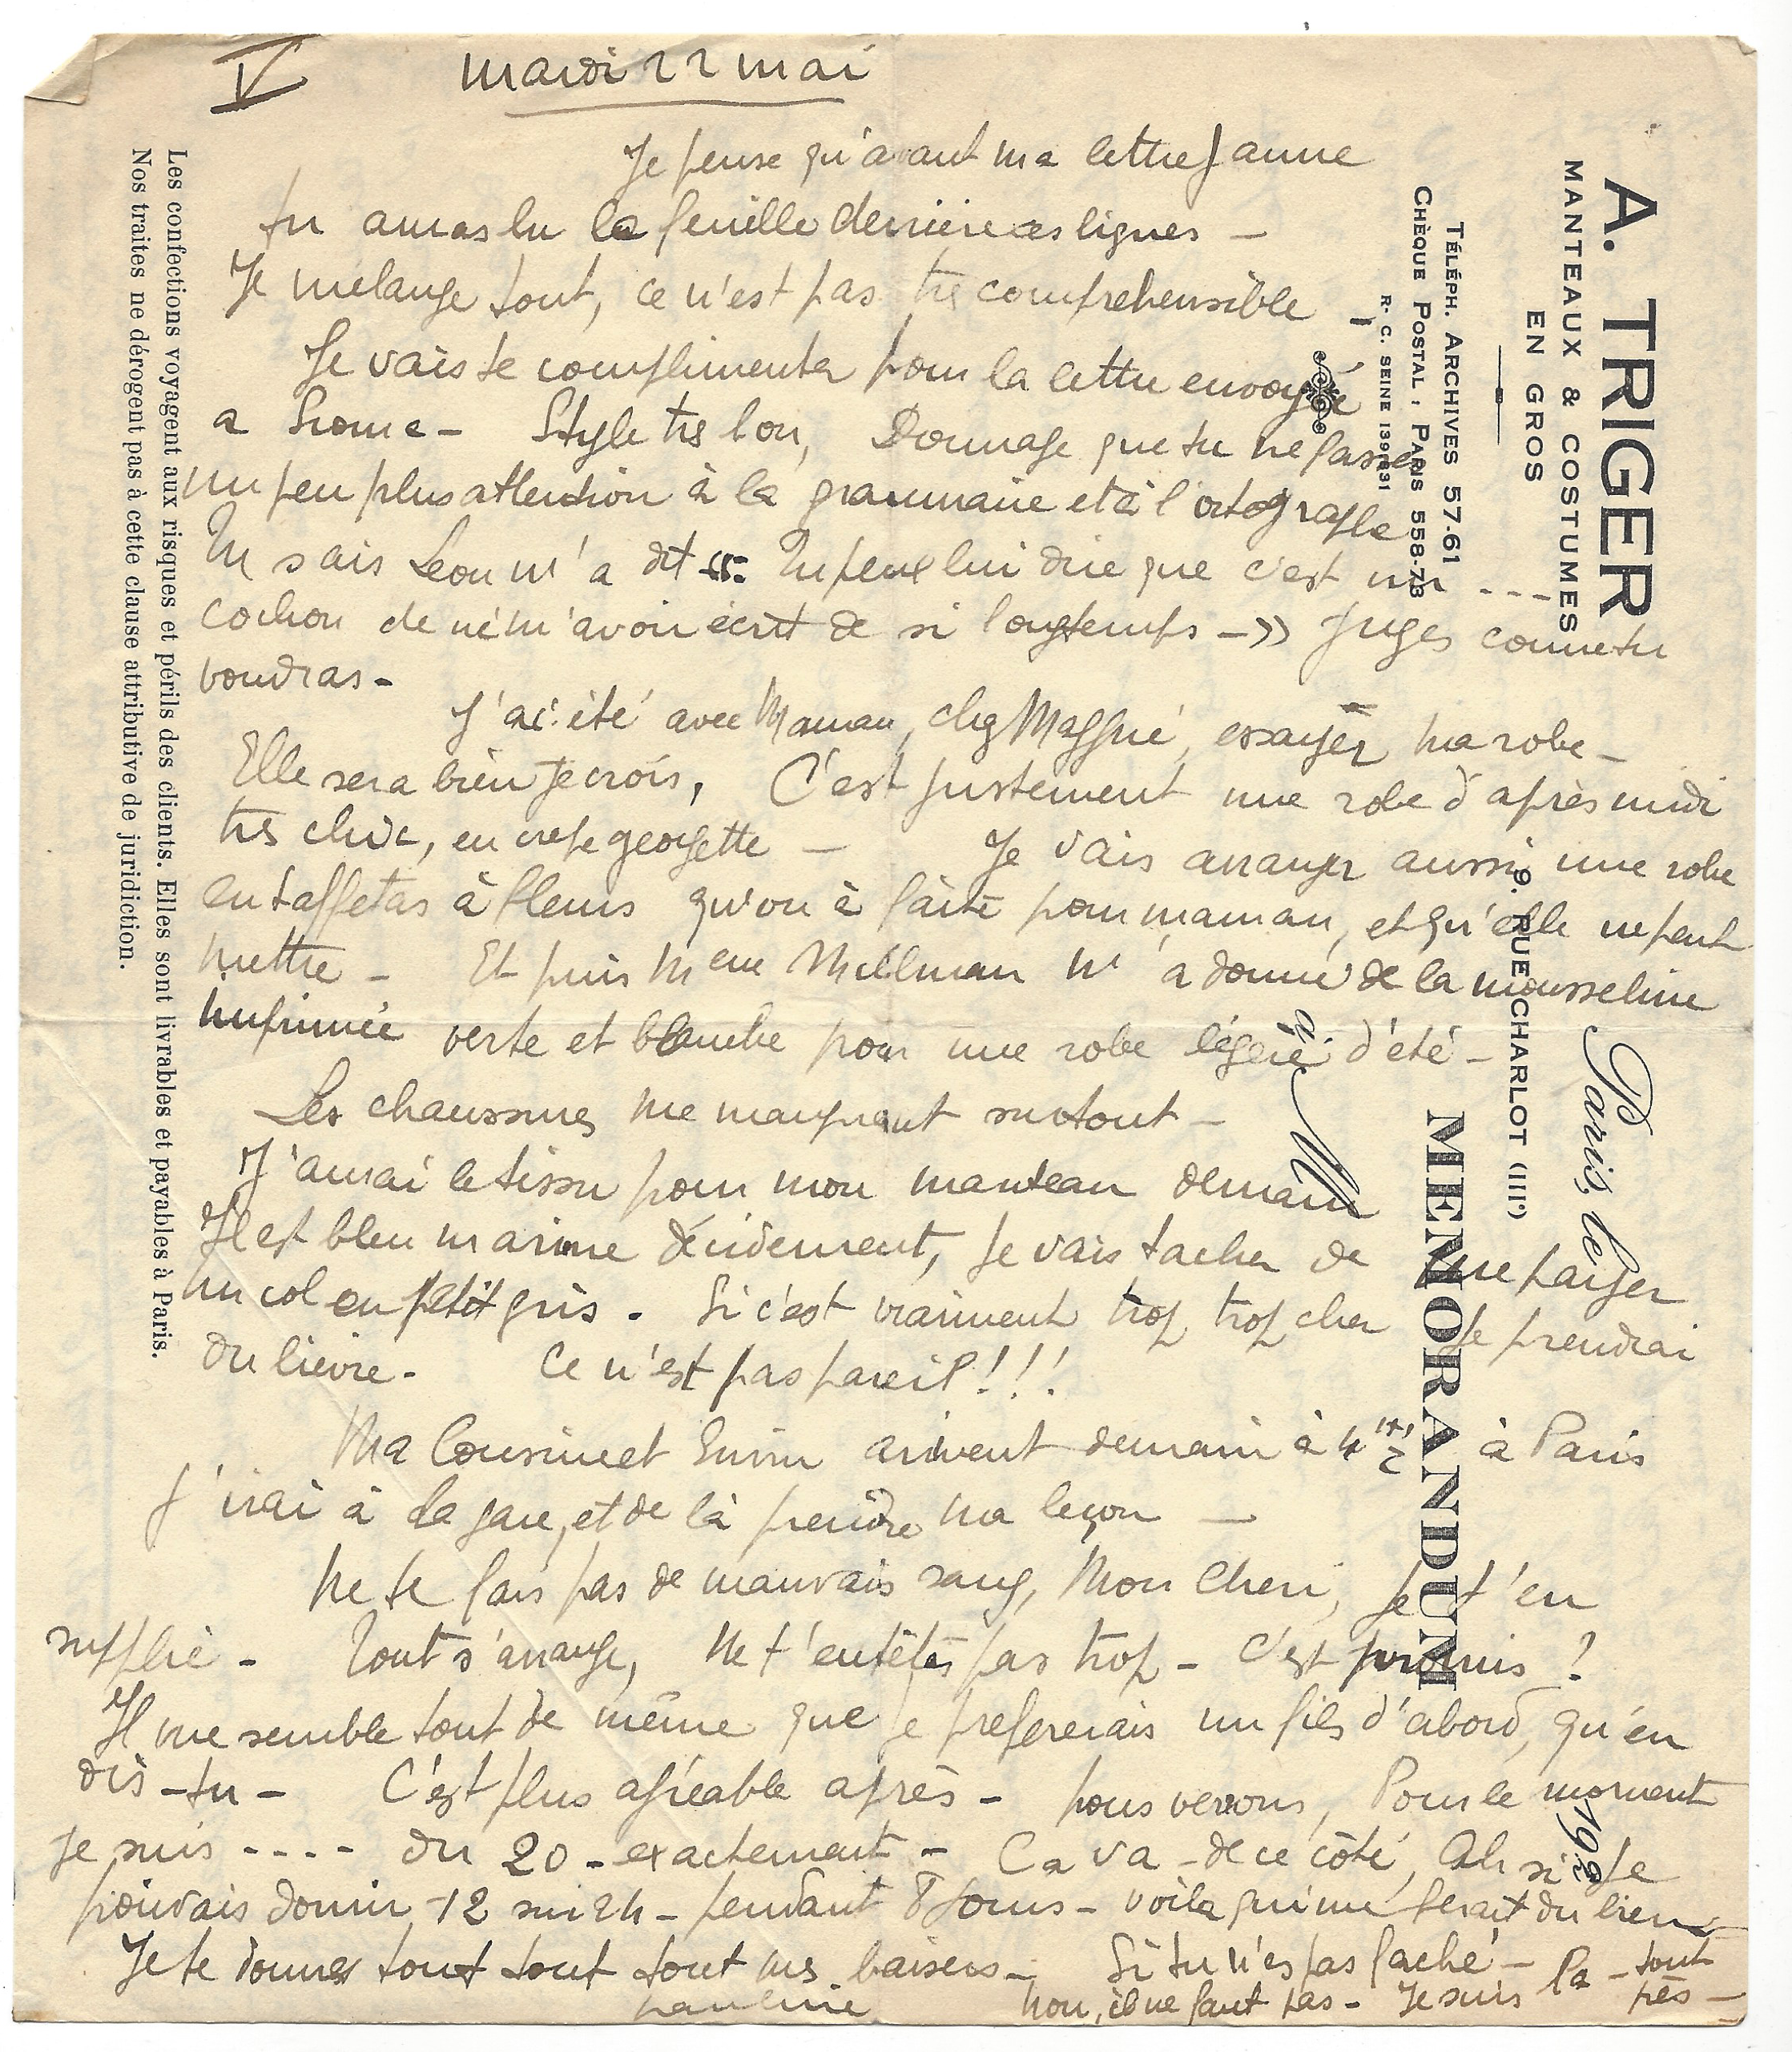 V mardi 22 mai
Je pense qu'avant ma lettre jaune
tu auras lu la feuille derrière ces lignes -
Je mélange tout, ce n'est pas très comprehensible -
Je vais te complimenter pour la lettre envoyée
a - Style très bon, Dommage que tu ne fasses
un peu plus attention à la grammaire et à l'ortografe
Tu sais Leon m'a dit "Tu peux lui dire que c'est un ----
cochon de ne m'avoir écrit de si longtemps -» Juges comme tu
voudras -
J'ai été avec Maman, chez essayer ma robe -
Elle sera bien je crois, C'est justement une robe d'après midi
très chic, en crepe georgette - Je vais arranger aussi une robe
en taffetas à fleurs qu'on à faite pour maman, et qu'elle ne peut
mettre - Et puis Mme Millman m'a donné de la mousseline
imprimée verte et blanche pour une robe légère d'été -
Les chaussures me manquent surtout -
J'aurai le tissu pour mon manteau demain
Il est bleu marine décidement, je vais tacher de me payer
un col en petit gris - Si c'est vraiment trop trop cher je prendrai
du lièvre - Ce n'est pas pareil!!!
Ma Cousine et arrivent demain à 4h 1/2 à Paris
J'irai à la gare, et de là prendre ma leçon -
Ne te fais pas de mauvais sang, Mon Cheri, je t'en
supplie - Tout s'arrange, Ne t'entêtes pas trop - C'est promis ?
Il me semble tout de même que je prefererais un fils d'abord, qu'en
dis-tu - C'est plus agréable après - nous verrons, Pour le moment
je suis ---- du 20 - exactement - Ca va - de ce côté, Ah si je
pouvais dormir 12 sur 24 - pendant 8 jours - voilà qui me ferait du bien
Je te donnes tout tout tout mes baisers - Si tu n'es pas faché -
non, il ne faut pas - Je suis là - tout
près -
A. TRIGER
MANTEAUX & COSTUMES
EN GROS
TÉLÉPH. ARCHIVES 57-61
CHÈQUE POSTAL : PARIS 558-73
R. C. SEINE 139131
9, RUE CHARLOT (IIIe)
Paris, le 192
MEMORANDUM
M
à
Les confections voyagent aux risques et périls des clients. Elles sont livrables et payables à Paris.
Nos traites ne dérogent pas à cette clause attributive de juridiction.